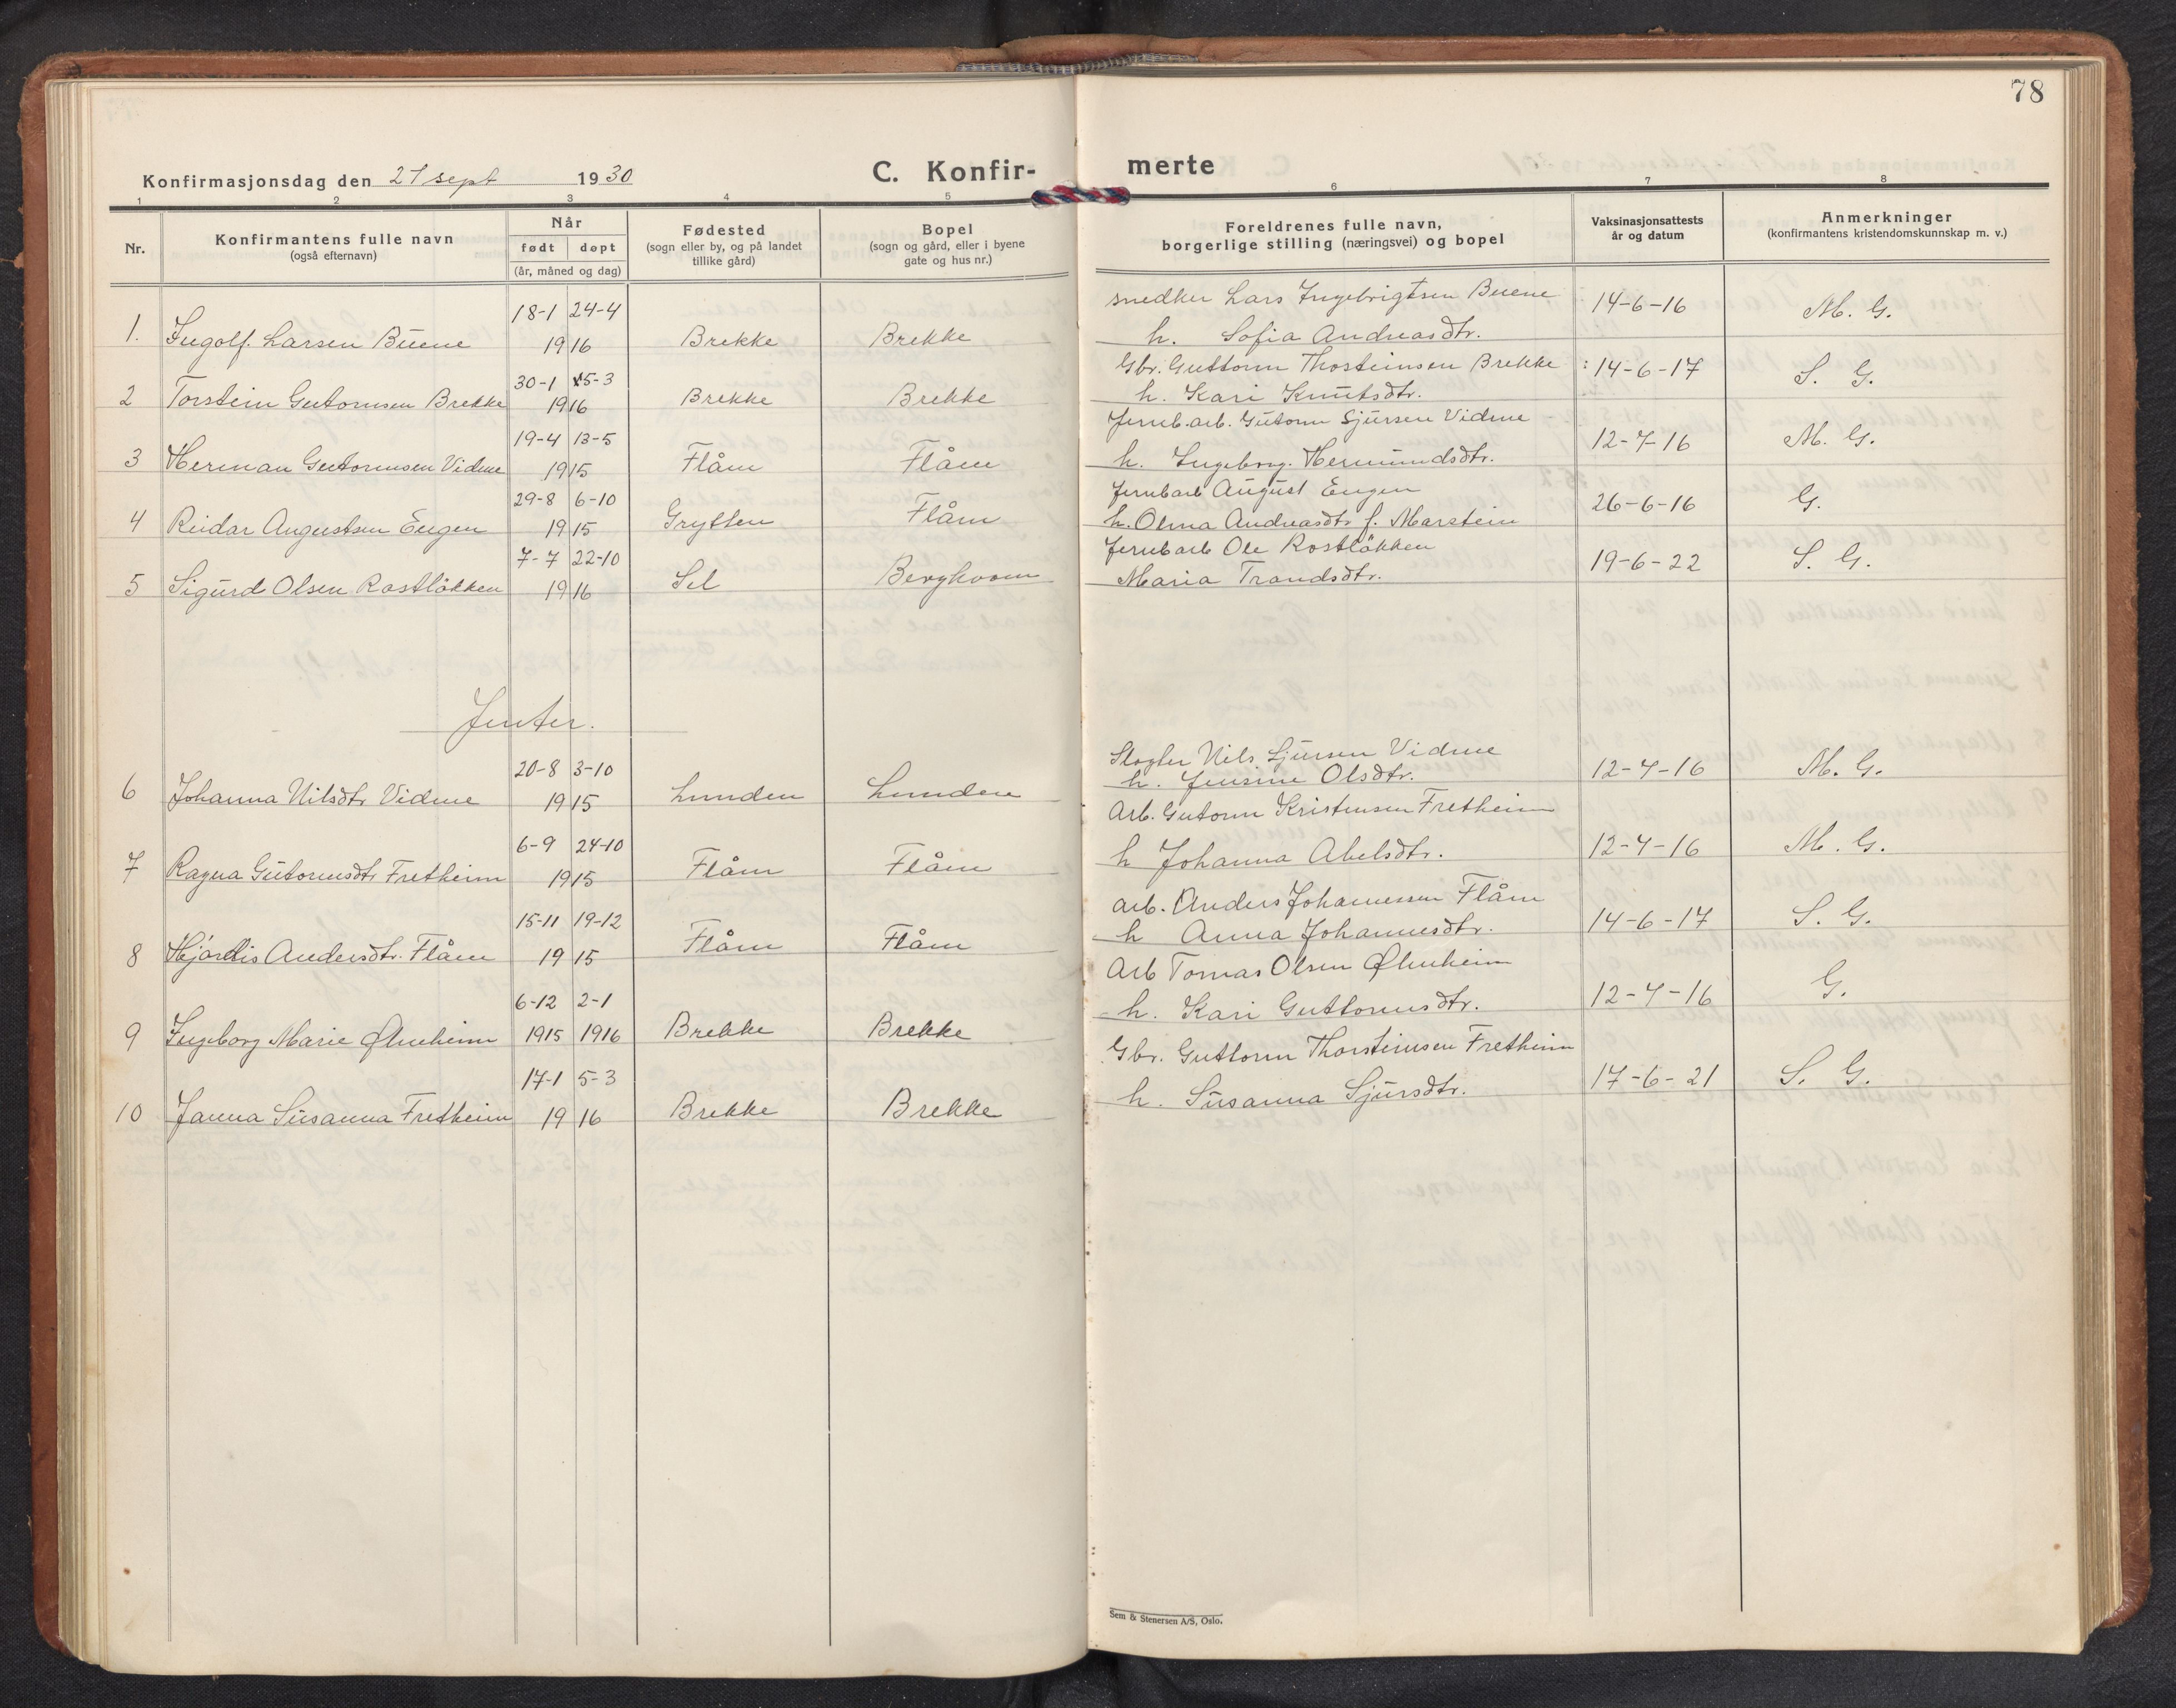 78
Konfirmasjonsdag den 21 sept 1930
C. Konfir- merte
1 2 3 4 5 6 7 8
Nr.
Konfirmantens fulle navn
(også efternavn)
Når
født døpt
(år, måned og dag)
Fødested
(sogn eller by, og på landet
tillike gård)
Bopel
(sogn og gård, eller i byene
gate og hus nr.)
Foreldrenes fulle navn,
borgerlige stilling (næringsvei) og bopel
Vaksinasjonsattests
år og datum
Anmerkninger
(konfirmantens kristendomskunnskap m. v.)
18-1 24-4 snedker Lars Ingebrigtsen Buene 14-6-16 M. G.
1. Ingolf Larsen Buene 1916 Brekke Brekke h. Sofia Andreasdtr.
30-1 15-3 Gbr. Guttorm Thosteinsen Brekke 14-6-17 S. G.
2 Torstein Gutormsen Brekke 1916 Brekke Brekke h. Kari Knutsdtr.
19-4 13-5 Jernb.arb. Gutorm Sjursen Vidme 12-7-16 M. G.
3 Herman Gutormsen Vidme 1915 Flåm Flåm h. Ingeborg Hermundsdtr.
29-8 6-10 Jernbarb August Engen 26-6-16 G.
4 Reidar Augustsen Engen 1915 Grytten Flåm h. Olma Andreasdtr f. Marstein
7-7 22-10 Jernbarb Ole Rostløkken 19-6-22 S. G.
5 Sigurd Olsen Rostløkken 1916 Sel Berghvom Maria Trondsdtr.
Jenter.
20-8 3-10 Slagter Nils Sjursen Vidme 12-7-16 M. G.
6 Johanna Nilsdtr Vidme 1915 Lunden Lunden h. Jensine Olsdtr.
6-9 24-10 Arb. Gutorm Kristensen Fretheim 12-7-16 M. G.
7 Ragna Gutormsdtr Fretheim 1915 Flåm Flåm h Johanna Abelsdtr.
15-11 19-12 arb. Anders Johannessen Flåm 14-6-17 S. G.
8 Hjørdis Andersdtr. Flåm 1915 Flåm Flåm h Anna Johannesdtr.
6-12 2-1 Arb Tomas Olsen Ølnheim 12-7-16 G.
9 Ingeborg Marie Ølnheim 1915 1916 Brekke Brekke h. Kari Guttormsdtr.
17-1 5-3 Gbr. Guttorm Thorsteinsen Fretheim 17-6-21 S. G.
10 Janna Susanna Fretheim 1916 Brekke Brekke h. Susanna Sjursdtr.
Sem & Stenersen A/S, Oslo.